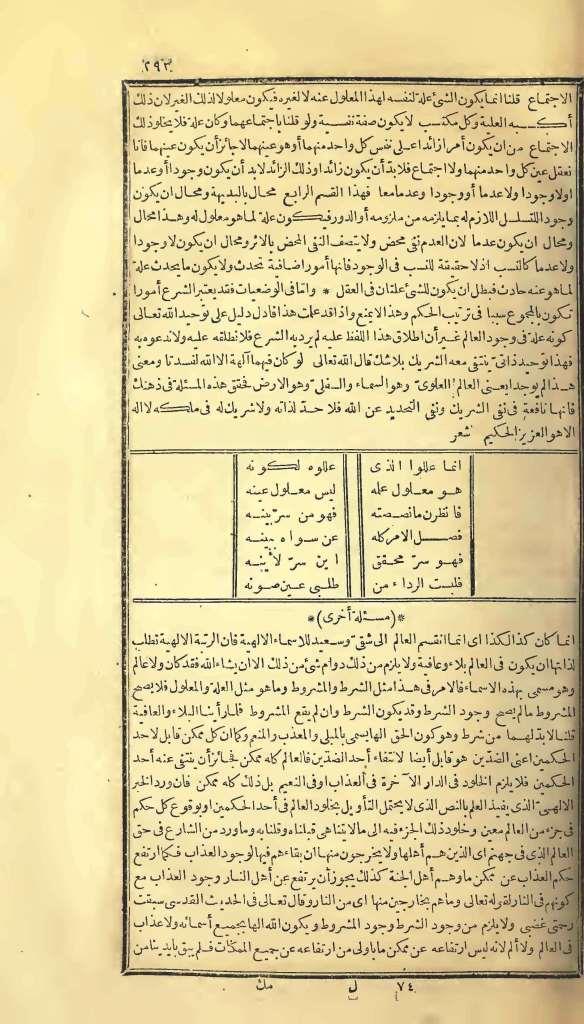 ٢٩٣
الاجتماع قلنا انما يكون الشئ علة لنفسه لهذا المعلول عنه لا لغيره فيكون معلولا لذلك الغير لان ذلك
أكسبه العلية وكل مكتسب لا يكون صفة نفسية ولو قلنا باجتماعهما وكان علة فلا يخلو ذلك
الاجتماع من ان يكون أمرا زائدا على نفس كل واحد منهما أو هو عينهما لا جائز أن يكون عينهما فانا
نعقل عين كل واحد منهما ولا اجتماع فلا بد أن يكون زائدا وذلك الزائد لا بد أن يكون وجودا أو عدما
أو لا وجودا ولا عدما أو وجودا وعدما معا فهذا القسم الرابع محال بالبديهة ومحال ان يكون
وجودا للتسلسل اللازم له بما يلزمه من ملزومه أو الدور فيكون علة لما هو معلول له وهذا محال
ومحال ان يكون عدما لان العدم نفى محض ولا يتصف النفى المحض بالاثر ومحال ان يكون لا وجودا
ولا عدما كالنسب اذ لا حقيقة للنسب فى الوجود فانها أمور اضافية تحدث ولا يكون ما يحدث علة
لما هو عنه حادث فبطل ان يكون للشئ علتان فى العقل * وامّا فى الوضعيات فقد يعتبر الشرع أمورا
تكون بالمجموع سببا فى ترتيب الحكم وهذا لا يمنع واذ قد علمت هذا فادل دليل على توحيد الله تعالى
كونه علة فى وجود العالم غير أن اطلاق هذا اللفظ عليه لم يرد به الشرع فلا نطلقه عليه ولا ندعوه به
فهذا توحيد ذاتىّ ينتفى معه الشريك بلا شك قال الله تعالى لو كان فيهما آلهة الا الله لفسدتا ومعنى
هذا لم يوجدا يعنى العالم العلوىّ وهو السماء والسفلىّ وهو الارض فحقق هذه المسئلة فى ذهنك
فانها نافعة فى نفى الشريك ونفى التحديد عن الله فلا حدّ لذاته ولا شريك له فى ملكه لا اله
الا هو العزيز الحكيم شعر
انما عللوا الذى علاوه لكونه
هو معلول علة ليس معلول عينه
فانظرن ما نصصته فهو من سرّ بينه
فصل الامر كله عن سواه ببينه
فهو سرّ محقق اين سرّ لأينه
فلبست الرداء من طلبى عين صونه
*(مسئلة أخرى)*
انما كان كذا لكذا اى انما انقسم العالم الى شقىّ وسعيد للاسماء الالهية فان الرتبة الالهية تطلب
لذاتها ان يكون فى العالم بلاء وعافية ولا يلزم من ذلك دوام شئ من ذلك الا ان يشاء الله فقد كان ولا عالم
وهو مسمى بهذه الاسماء فالامر فى هذا مثل الشرط والمشروط وما هو مثل العلة والمعلول فلا يصح
المشروط ما لم يصح وجود الشرط وقد يكون الشرط وان لم يقع المشروط فلما رأينا البلاء والعافية
قلنا لا بدّ لهما من شرط وهو كون الحق الها يسمى بالمبلى والمعذب والمنعم وكما ان كل ممكن قابل لاحد
الحكمين اعنى الضدّين هو قابل أيضا لانتفاء أحد الضدّين فالعالم كله ممكن فجائز أن ينتفى عنه أحد
الحكمين فلا يلزم الخلود فى الدار الآخرة فى العذاب او فى النعيم بل ذلك كله ممكن فان ورد الخبر
الالهىّ الذى يفيد العلم بالنص الذى لا يحتمل التأويل بخلود العالم فى أحد الحكمين او بوقوع كل حكم
فى جزء من العالم معين وخلود ذلك الجزء فيه الى ما لا يتناهى قبلناه وقلنا به وما ورد من الشارع فى حق
العالم الذى فى جهنم اى الذين هم أهلها ولا يخرجون منها ان بقاءهم فيها لوجود العذاب فكما ارتفع
حكم العذاب عن ممكن ما وهم أهل الجنة كذلك يجوز أن يرتفع عن أهل النار وجود العذاب مع
كونهم فى النار لقوله تعالى وما هم بخارجين منها اى من النار وقال تعالى فى الحديث القدسى سبقت
رحمتى غضبى ولا يلزم من وجود الشرط وجود المشروط ويكون الله الها بجميع أسمائه ولا عذاب
فى العالم ولا ألم لانه ليس ارتفاعه عن ممكن ما باولى من ارتفاعه عن جميع الممكنات فلم يبق بايدينا من
٧٤ ل مك